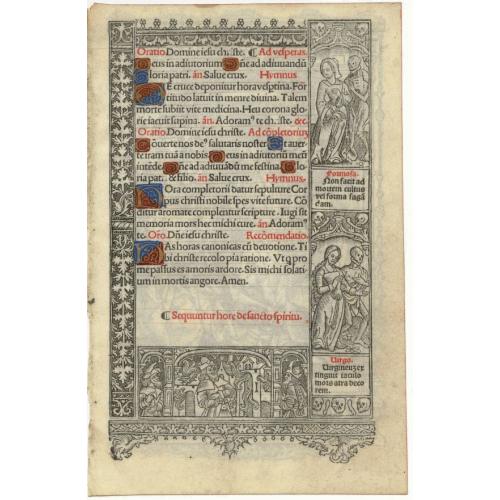 Oratio. Domine iesu christe. ¶ Ad vesperas.
Deus in adiutorium. Dñe ad adiuuandũ
Gloria patri. ãn Salue crux. Hymnus
DE cruce deponitur hora vesptina. For
titudo latuit in mente diuina. Talem
mortem subiit vite medicina. Heu corona glo
rie iacuit supina. ãn. Adoramꝰ te christe. &c.
Oratio. Domine iesu christe. Ad cõpletoriũ
Conuerte nos deꝰ salutaris noster Et auer
te iram tuã a nobis. Deus in adiutoriũ meũ
intẽde. Dñe ad adiuuãdũ me festina. Glo
ria pat. & filio. ãn Salue crux. Hymnus.
HOra completorii datur sepulture Cor
pus christi nobile spes vite future. Cõ
ditur aromate complentur scripture. Iugi sit
memoria mors hec michi cure. ãn Adoramꝰ
te. Oro. Dñe iesu christe. Recõmendatio
HAs horas canonicas cũ deuotione. Ti
bi christe recolo pia ratione. Vt q pro
me passus es amoris ardore. Sis michi solati
um in mortis angore. Amen.
¶ Sequuntur hore de sancto spiritu.
Formosa.
Non facit ad
mortem cultus
vel forma fugã
dam.
Virgo.
Virgineuz ex
tinguit iaculo
mors atra deco
rem.